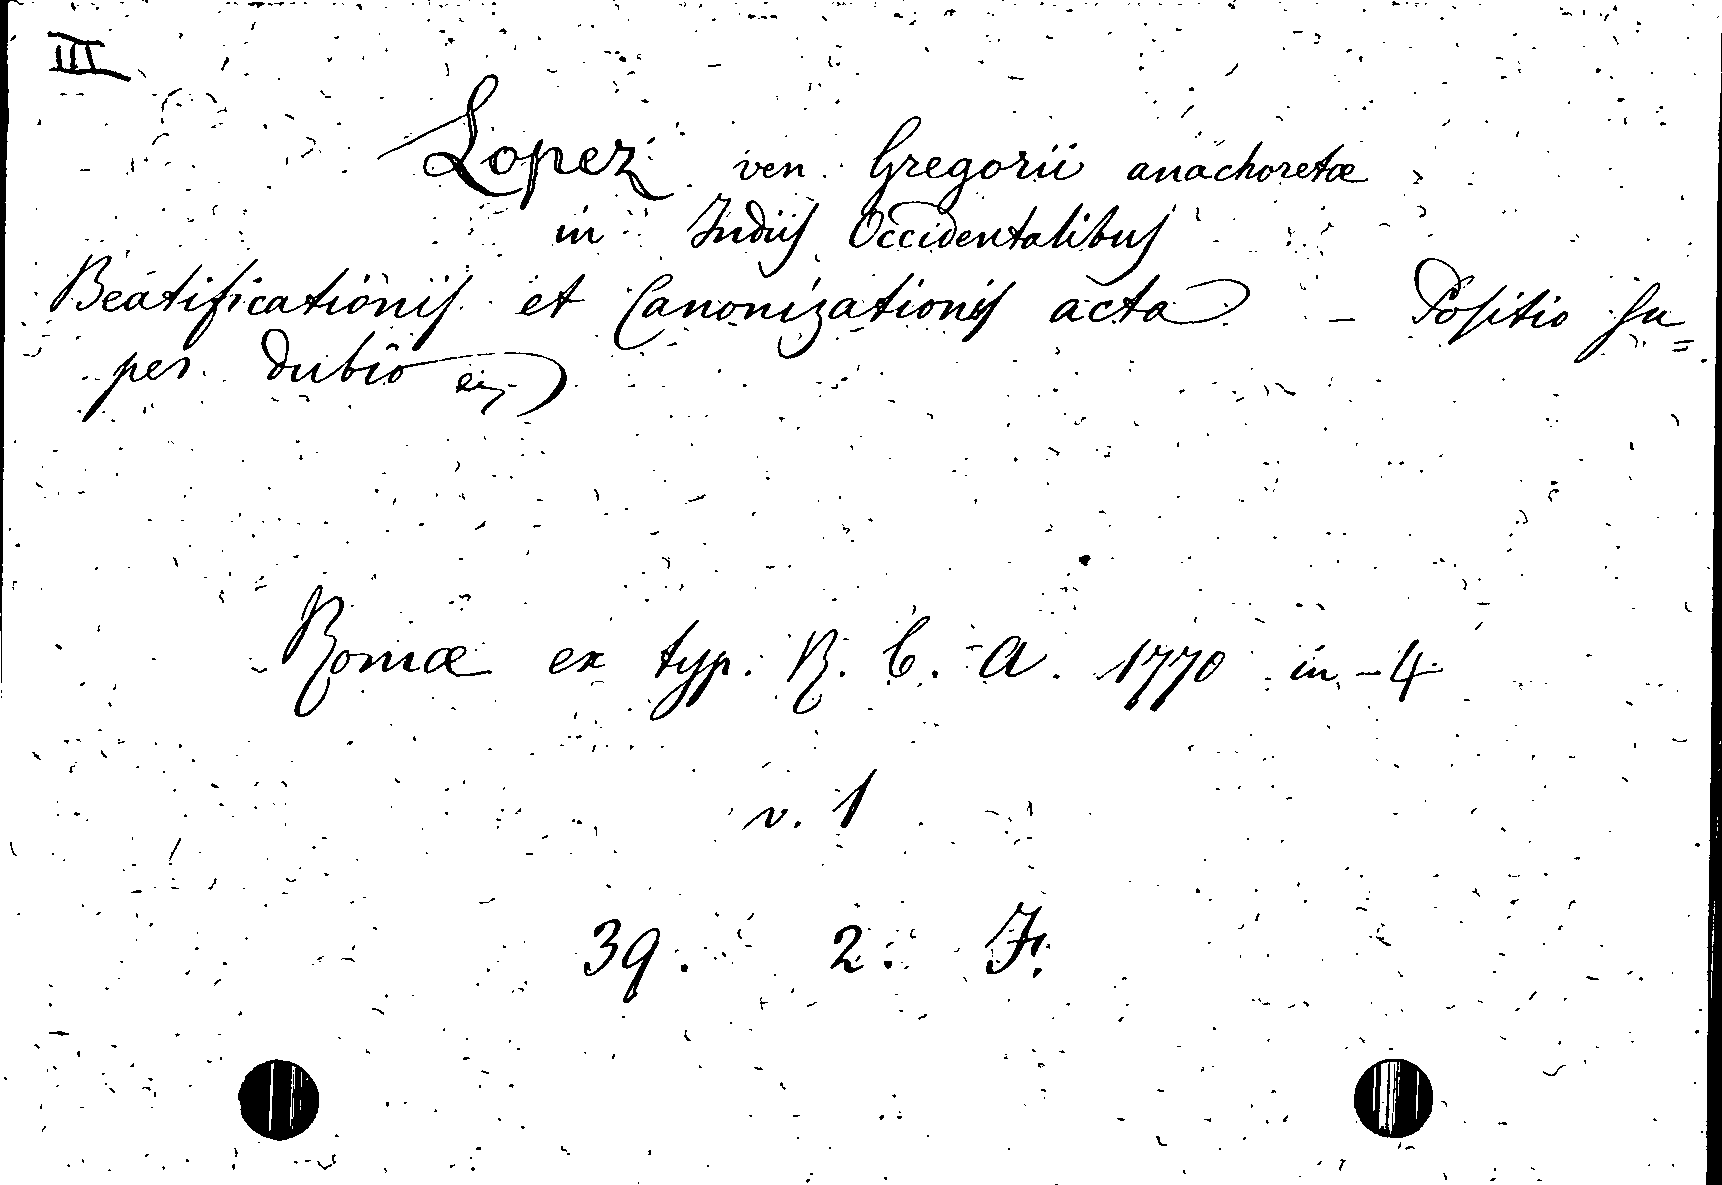 III
Lopez ven. Gregorii anachoretæ
in Indiis Occidentalibus
Beatificationis et Canonizationis acta – Positio su=
per dubio
Romæ ex typ. R. C. A. 1770 in-4
v. 1
39. 2. F.